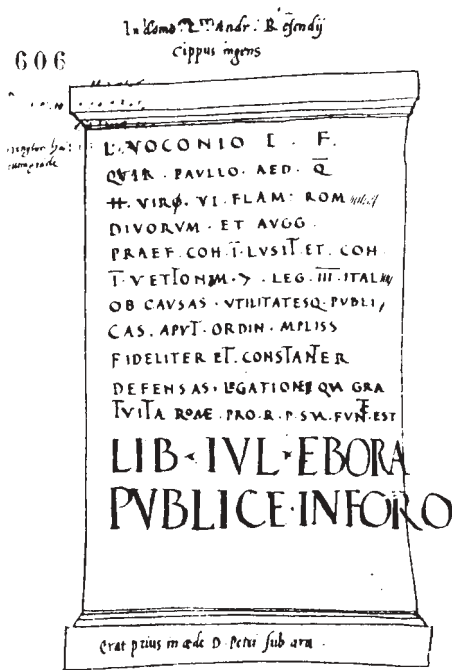 In domo Andr. Resendij
Cippus ingens
606
L. VOCONIO L . F.
QVIR . PAVLLO . AED . Q̅
II . VIRO . VI . FLAM . ROM
DIVORVM . ET AVGG
PRAEF . COH . I̅ . LVSIT . ET . COH .
I̅ . VETTONVM . > . LEG . I̅I̅I̅ . ITAL
OB CAVSAS . VTILITATESQ . PVBLI
CAS . APVT . ORDIN . AMPLISS
FIDELITER ET . CONSTANTER
DEFENSAS . LEGATIONE QVA GRA
TVITA ROMAE . PRO . R . P . SVA . FVNCT . EST
LIB . IVL . EBORA
PVBLICE . IN FORO
Erat prius in aede D. Petri sub ara .